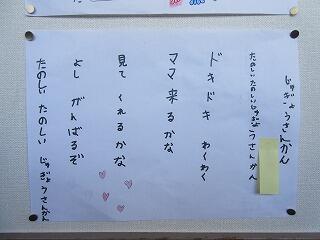 じゅぎょうさんかん
たのしいたのしいじゅぎょうさんかん
ドキドキ わくわく
ママ来るかな
見てくれるかな
よし がんばるぞ
たのしい たのしい じゅぎょうさんかん